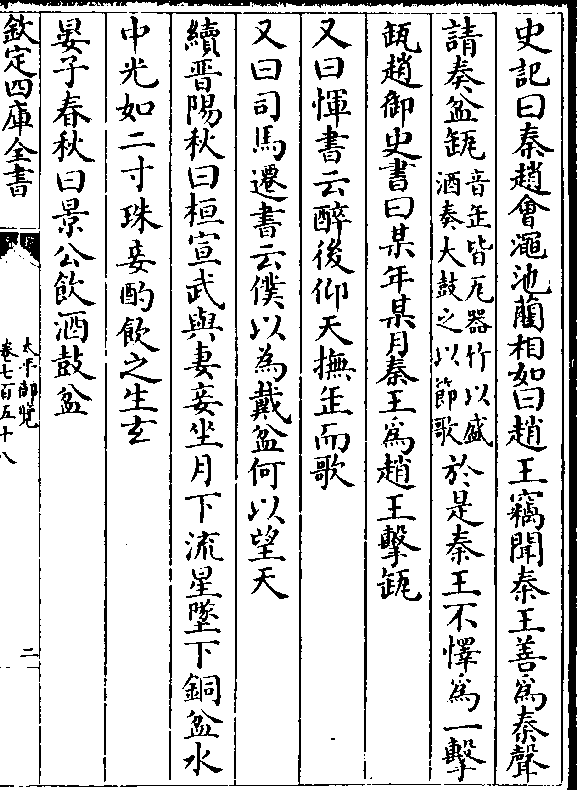 史記曰秦趙會澠池藺相如曰趙王竊聞秦王善為秦聲
請奏盆缻音缶皆瓦器竹以盛酒奏大鼓之以節歌於是秦王不懌為一擊
缻趙御史書曰某年某月秦王為趙王擊缻
又曰惲書云醉後仰天撫缶而歌
又曰司馬遷書云僕以為戴盆何以望天
續晉陽秋曰桓宣武與妻妾坐月下流星墜下銅盆水
中光如二寸珠妾酌飲之生玄
晏子春秋曰景公飲酒鼓盆
欽定四庫全書
太平御覽
卷七百五十八
二